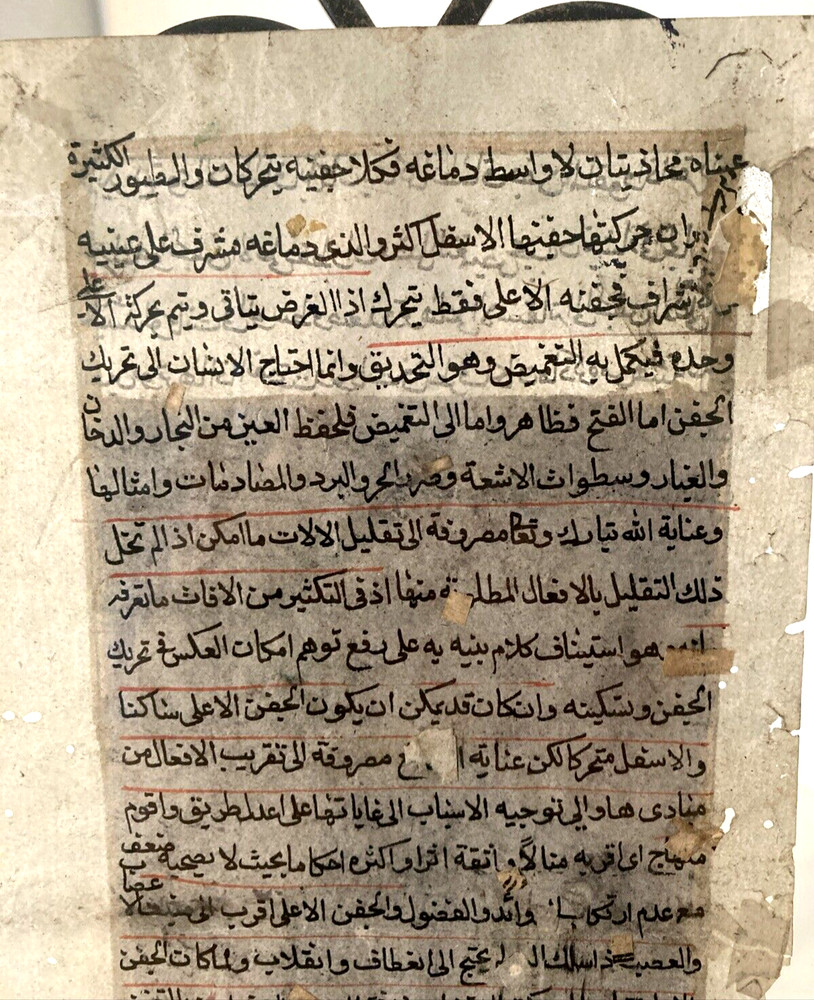 عيناه محاذيتان لا واسط دماغه فكلا جفنيه يتحركان والطيور الكثيرة
ان حركتها جفنها الاسفل اكثر والذى دماغه مشرف على عينيه
الاشراف فجفنه الاعلى فقط يتحرك اذ الغرض يتاتى ويتم بحركة الاعلى
وحده فيكمل به التغميض وهو التحديق وانما احتاج الانسان الى تحريك
الجفن اما الفتح فظاهر واما الى التغميض فلحفظ العين من البخار والدخان
والغبار وسطوات الاشعة وضرر الحر والبرد والمصادمات وامثالها
وعناية الله تبارك وتعا مصروفة الى تقليل الالات ما امكن اذا لم تخل
ذلك التقليل بالافعال المطلوبة منها اذ فى التكثير من الافات ما تعرفه
هو استيناف كلام بنيه به على دفع توهم امكان العكس فى تحريك
الجفن وتسكينه وان كان قد يمكن ان يكون الجفن الاعلى ساكنا
والاسفل متحركا لكن عناية مصروفة الى تقريب الافعال من
مبادى ها والى توجيه الاسباب الى غاياتها على اعدل طريق واقوم
منهاج اى اقربه منالا واتقة اثرا واكثره احكاما بحيث لا يصحبه ضعف
مع عدم ارتكاب والفضول والجفن الاعلى اقرب الى
والعصب اذا سلك لم يحتج الى انعطاف وانقلاب ولما كان الجفن